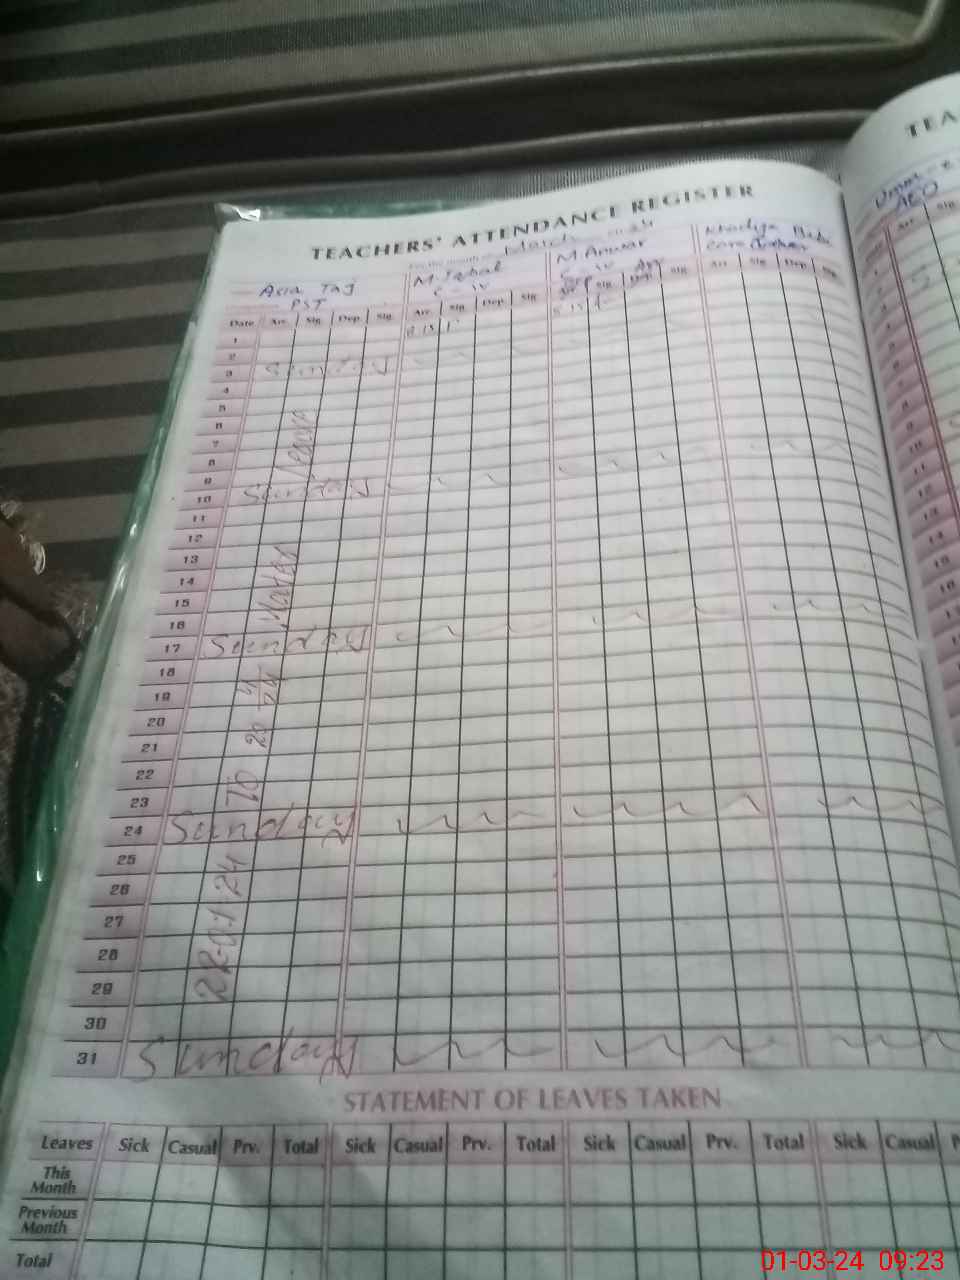 TEACHERS' ATTENDANCE REGISTER
TEA
For the month of March 24
Asia Taj
PST
M. Iqbal
C-IV
M Anwar
C-IV
Khadija Bibi
AEO
Date Arr. Sig. Dep. Sig. Arr. Sig. Dep. Sig. Sig. Dep. Sig. Arr. Sig. Dep. Sig.
1 8 15
2
3 Sunday
4
5
6
7
8
9
10 Sunday
11
12
13
14
15
16
17 Sunday
18
19
20
21
22
23
24 Sunday
25
26
27
28
29
30
31 Sunday
Leave
TO
STATEMENT OF LEAVES TAKEN
Leaves Sick Casual Prv. Total Sick Casual Prv. Total Sick Casual Prv. Total Sick Casual
This Month
Previous Month
Total
01-03-24 09:23